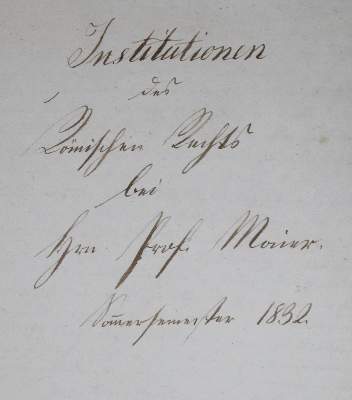 Institutionen
des
Römischen Rechts
bei
Hrn Prof. Maier.
Som̄ersemester 1832.